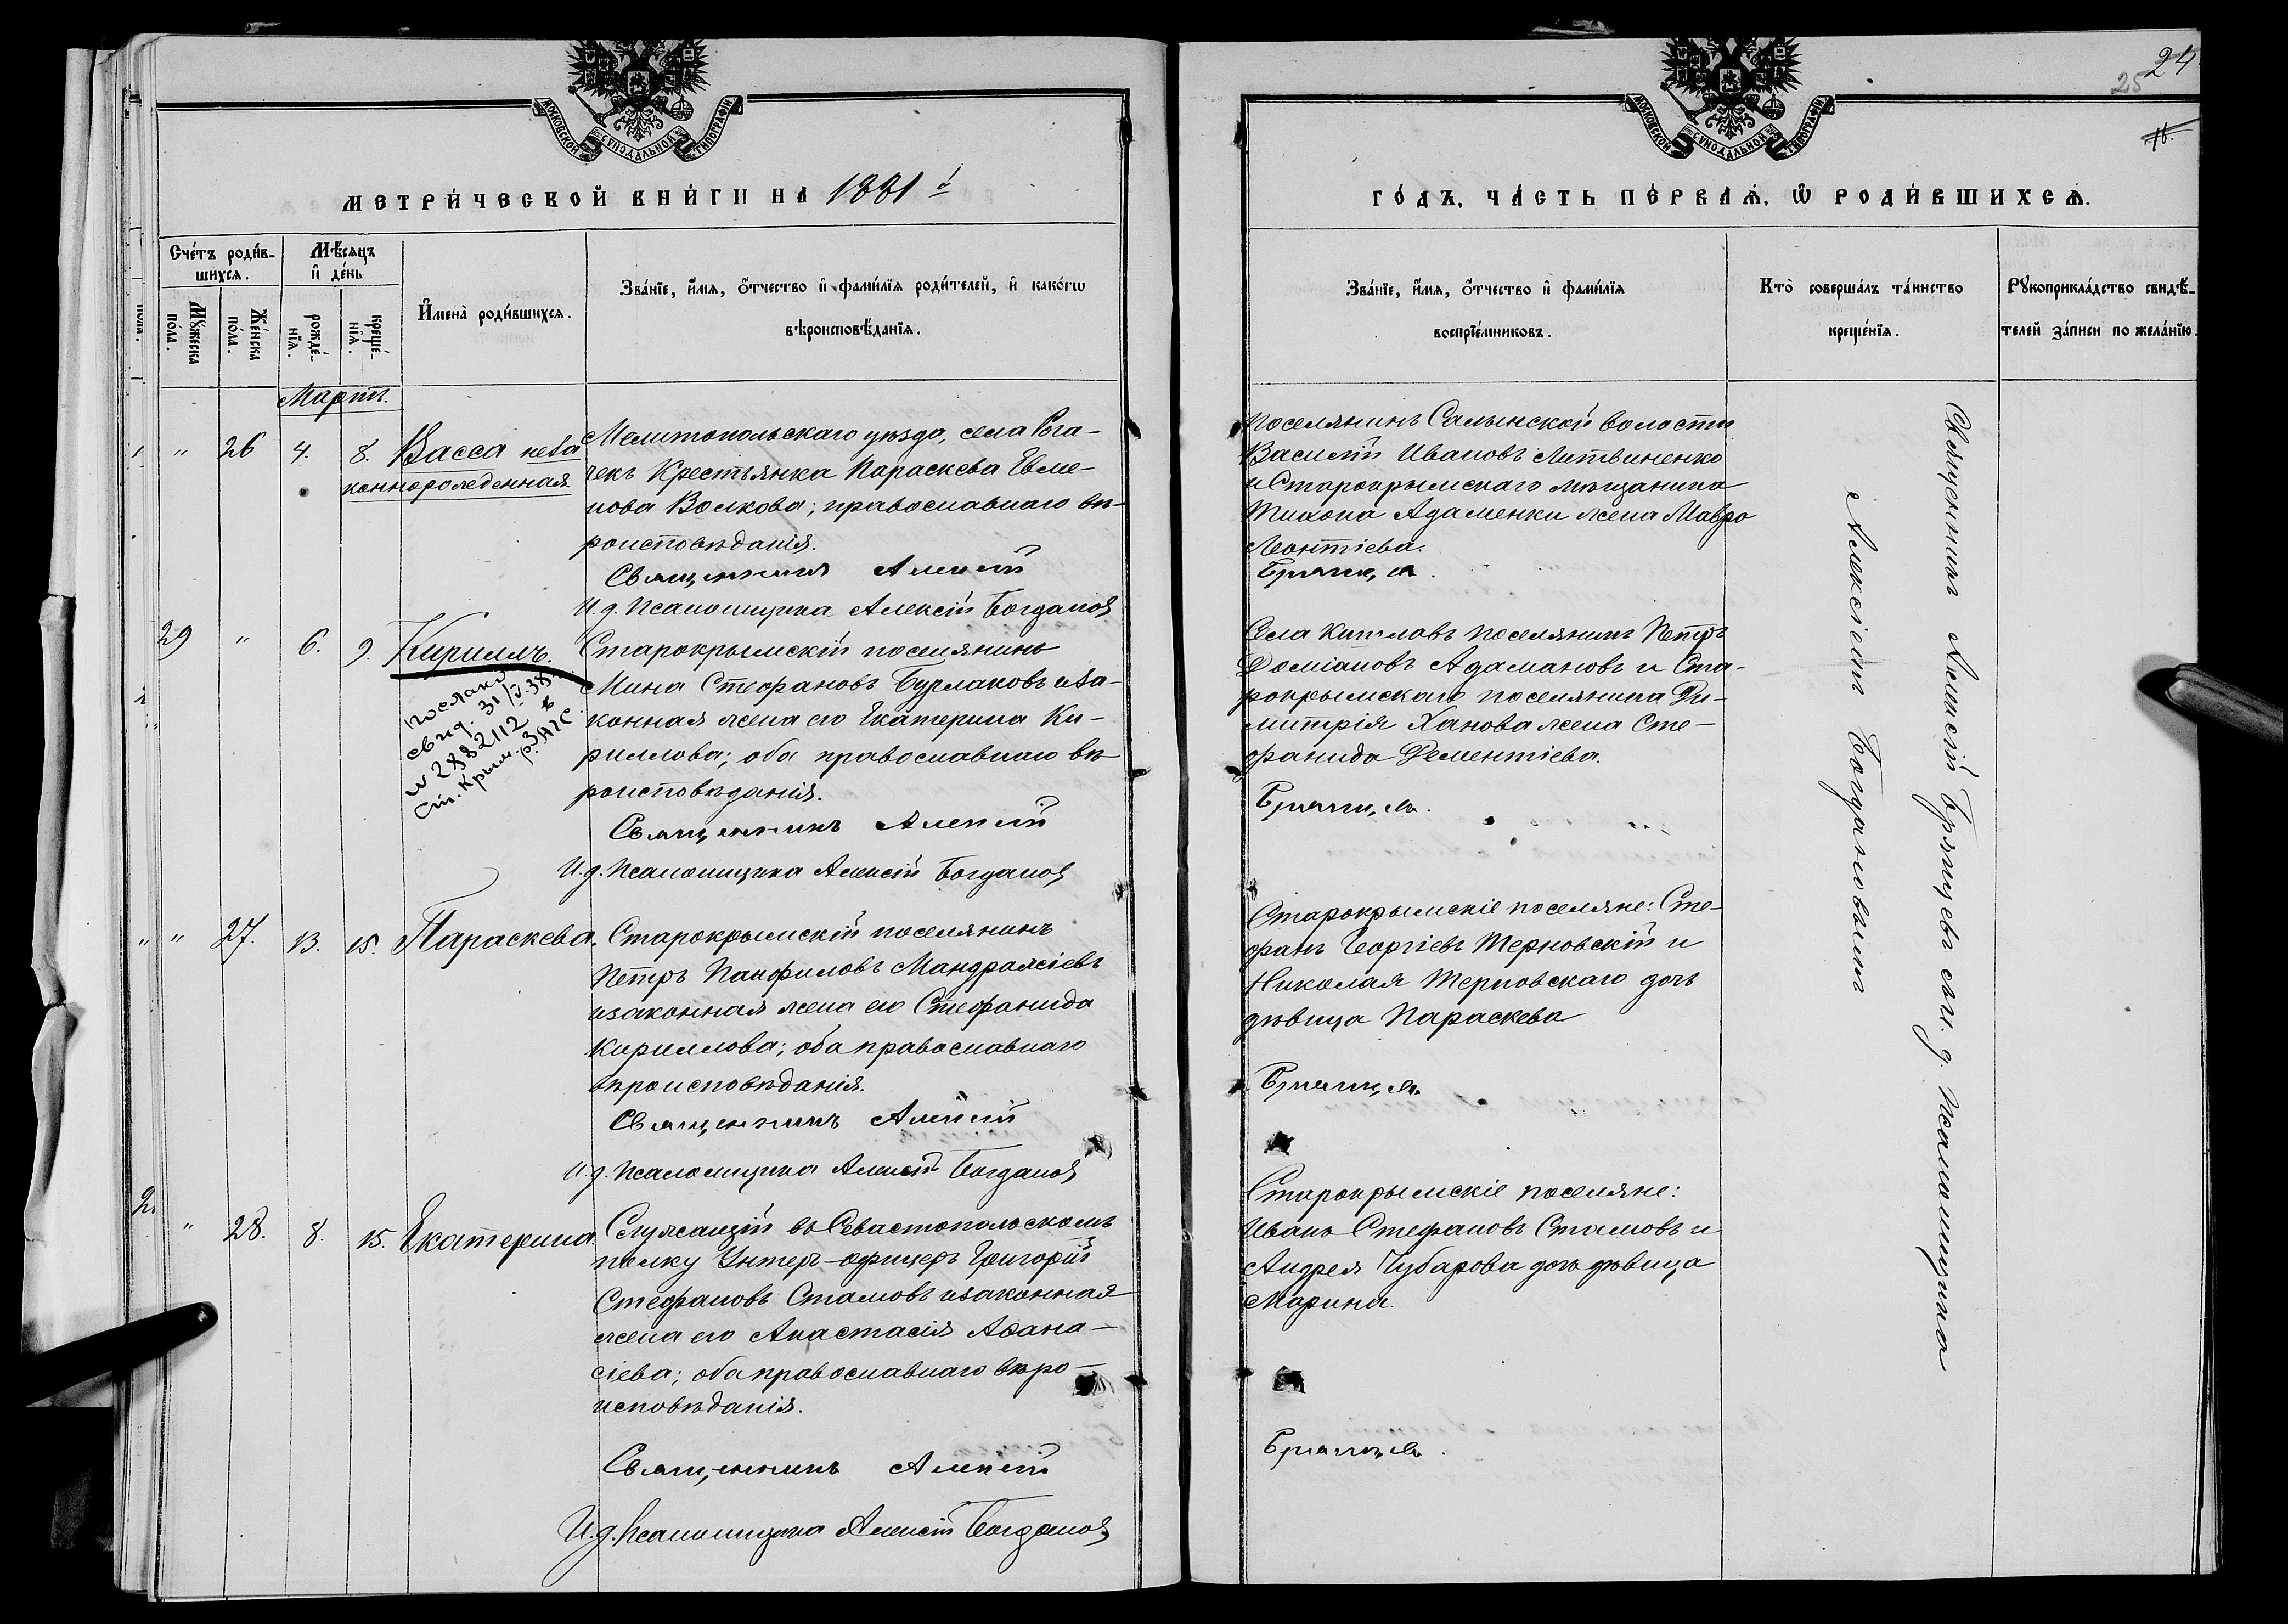 МОСКОВСКОЙ СѴНОДАЛЬНОЙ ТИПОГРАФІИ
МЕТРИ́ЧЕСКОЙ КНИ́ГИ НА 1881й
Сче́тъ роди́в-
шихся.
Мѣ́сяцъ
и҆ де́нь
Мꙋ́жеска
по́ла.
Же́нска
по́ла.
рожде́-
нїя.
креще́-
нїя.
И҆мена̀ роди́вшихся.
Зва́нїе, и҆́мя, ѻ҆́тчество и҆ фами́лїя роди́телей, и҆ како́гѡ
вѣроисповѣ́данїя.
Мартъ.
" 26 4. 8. Васса неза
коннорожденная.
Мелитопольскаго уѣзда, села Рога-
чекъ Крестьянка Параскева Евме-
нова Волкова; православнаго вѣ-
роисповѣданія.
Священникъ Алексій
И.д. Псаломщика Алексій Богданов
29 " 6. 9. Кириллъ.
послано
свид. 31/V-38
N 2882112 в
Ст. Крым. р. ЗАГС
Старокрымскій поселянинъ
Мина Стефановъ Бурлаковъ иза-
конная жена его Екатерина Ки-
риллова; оба православнаго вѣ
роисповѣданія.
Священникъ Алексій
И.д. Псаломщика Алексій Богданов
" 27. 13. 15. Параскева.
Старокрымскій поселянинъ
Петръ Панфиловъ Мандражіевъ
изаконная жена его Стефанида
Кириллова; оба православнаго
вѣроисповѣданія.
Священникъ Алексій
И.д. Псаломщика Алексій Богданов
" 28. 8. 15. Екатерина.
Служащій въ Севастопольскомъ
полку Унтеръ-офицеръ Григорій
Стефановъ Стамовъ изаконная
жена его Анастасія Аѳана-
сіева; оба православнаго вѣро-
исповѣданія.
Священникъ Алексій
И.д. Псаломщика Алексій Богданов
24
25
16.
МОСКОВСКОЙ СѴНОДАЛЬНОЙ ТИПОГРАФІИ
ГО́ДЪ, ЧА́СТЬ ПЕ́РВАЯ, Ѡ҆ РОДИ́ВШИХСЯ.
Зва́нїе, и҆́мя, ѻ҆́тчество и҆ фами́лїя
воспрїе́мниковъ.
Кто̀ соверша́лъ та́инство
креще́нїя.
Рꙋкоприкла́дство свидѣ́-
телей за́писи по жела́нїю.
Поселянинъ Салынской волости
Василій Ивановъ Литвиненко
и Старокрымскаго мѣщанина
Тихона Адаменки жена Мавро
Леонтіева.
Брянцевъ.
Села Кишлавъ поселянинъ Петръ
Доміановъ Адамановъ и Ста-
рокрымскаго поселянина Ди-
митрія Ханова жена Сте-
фанида Дементіева.
Брянцевъ.
Старокрымскіе поселяне: Сте-
фанъ Георгіевъ Терновскій и
Николая Терновскаго дочь
дѣвица Параскева
Брянцевъ.
Старокрымскіе поселяне:
Иванъ Стефановъ Стамовъ и
Андрея Чубарова дочь дѣвица
Марина.
Брянцевъ.
Священникъ Алексій Брянцевъ съ и. д. псаломщика
Алексіемъ Богдановымъ